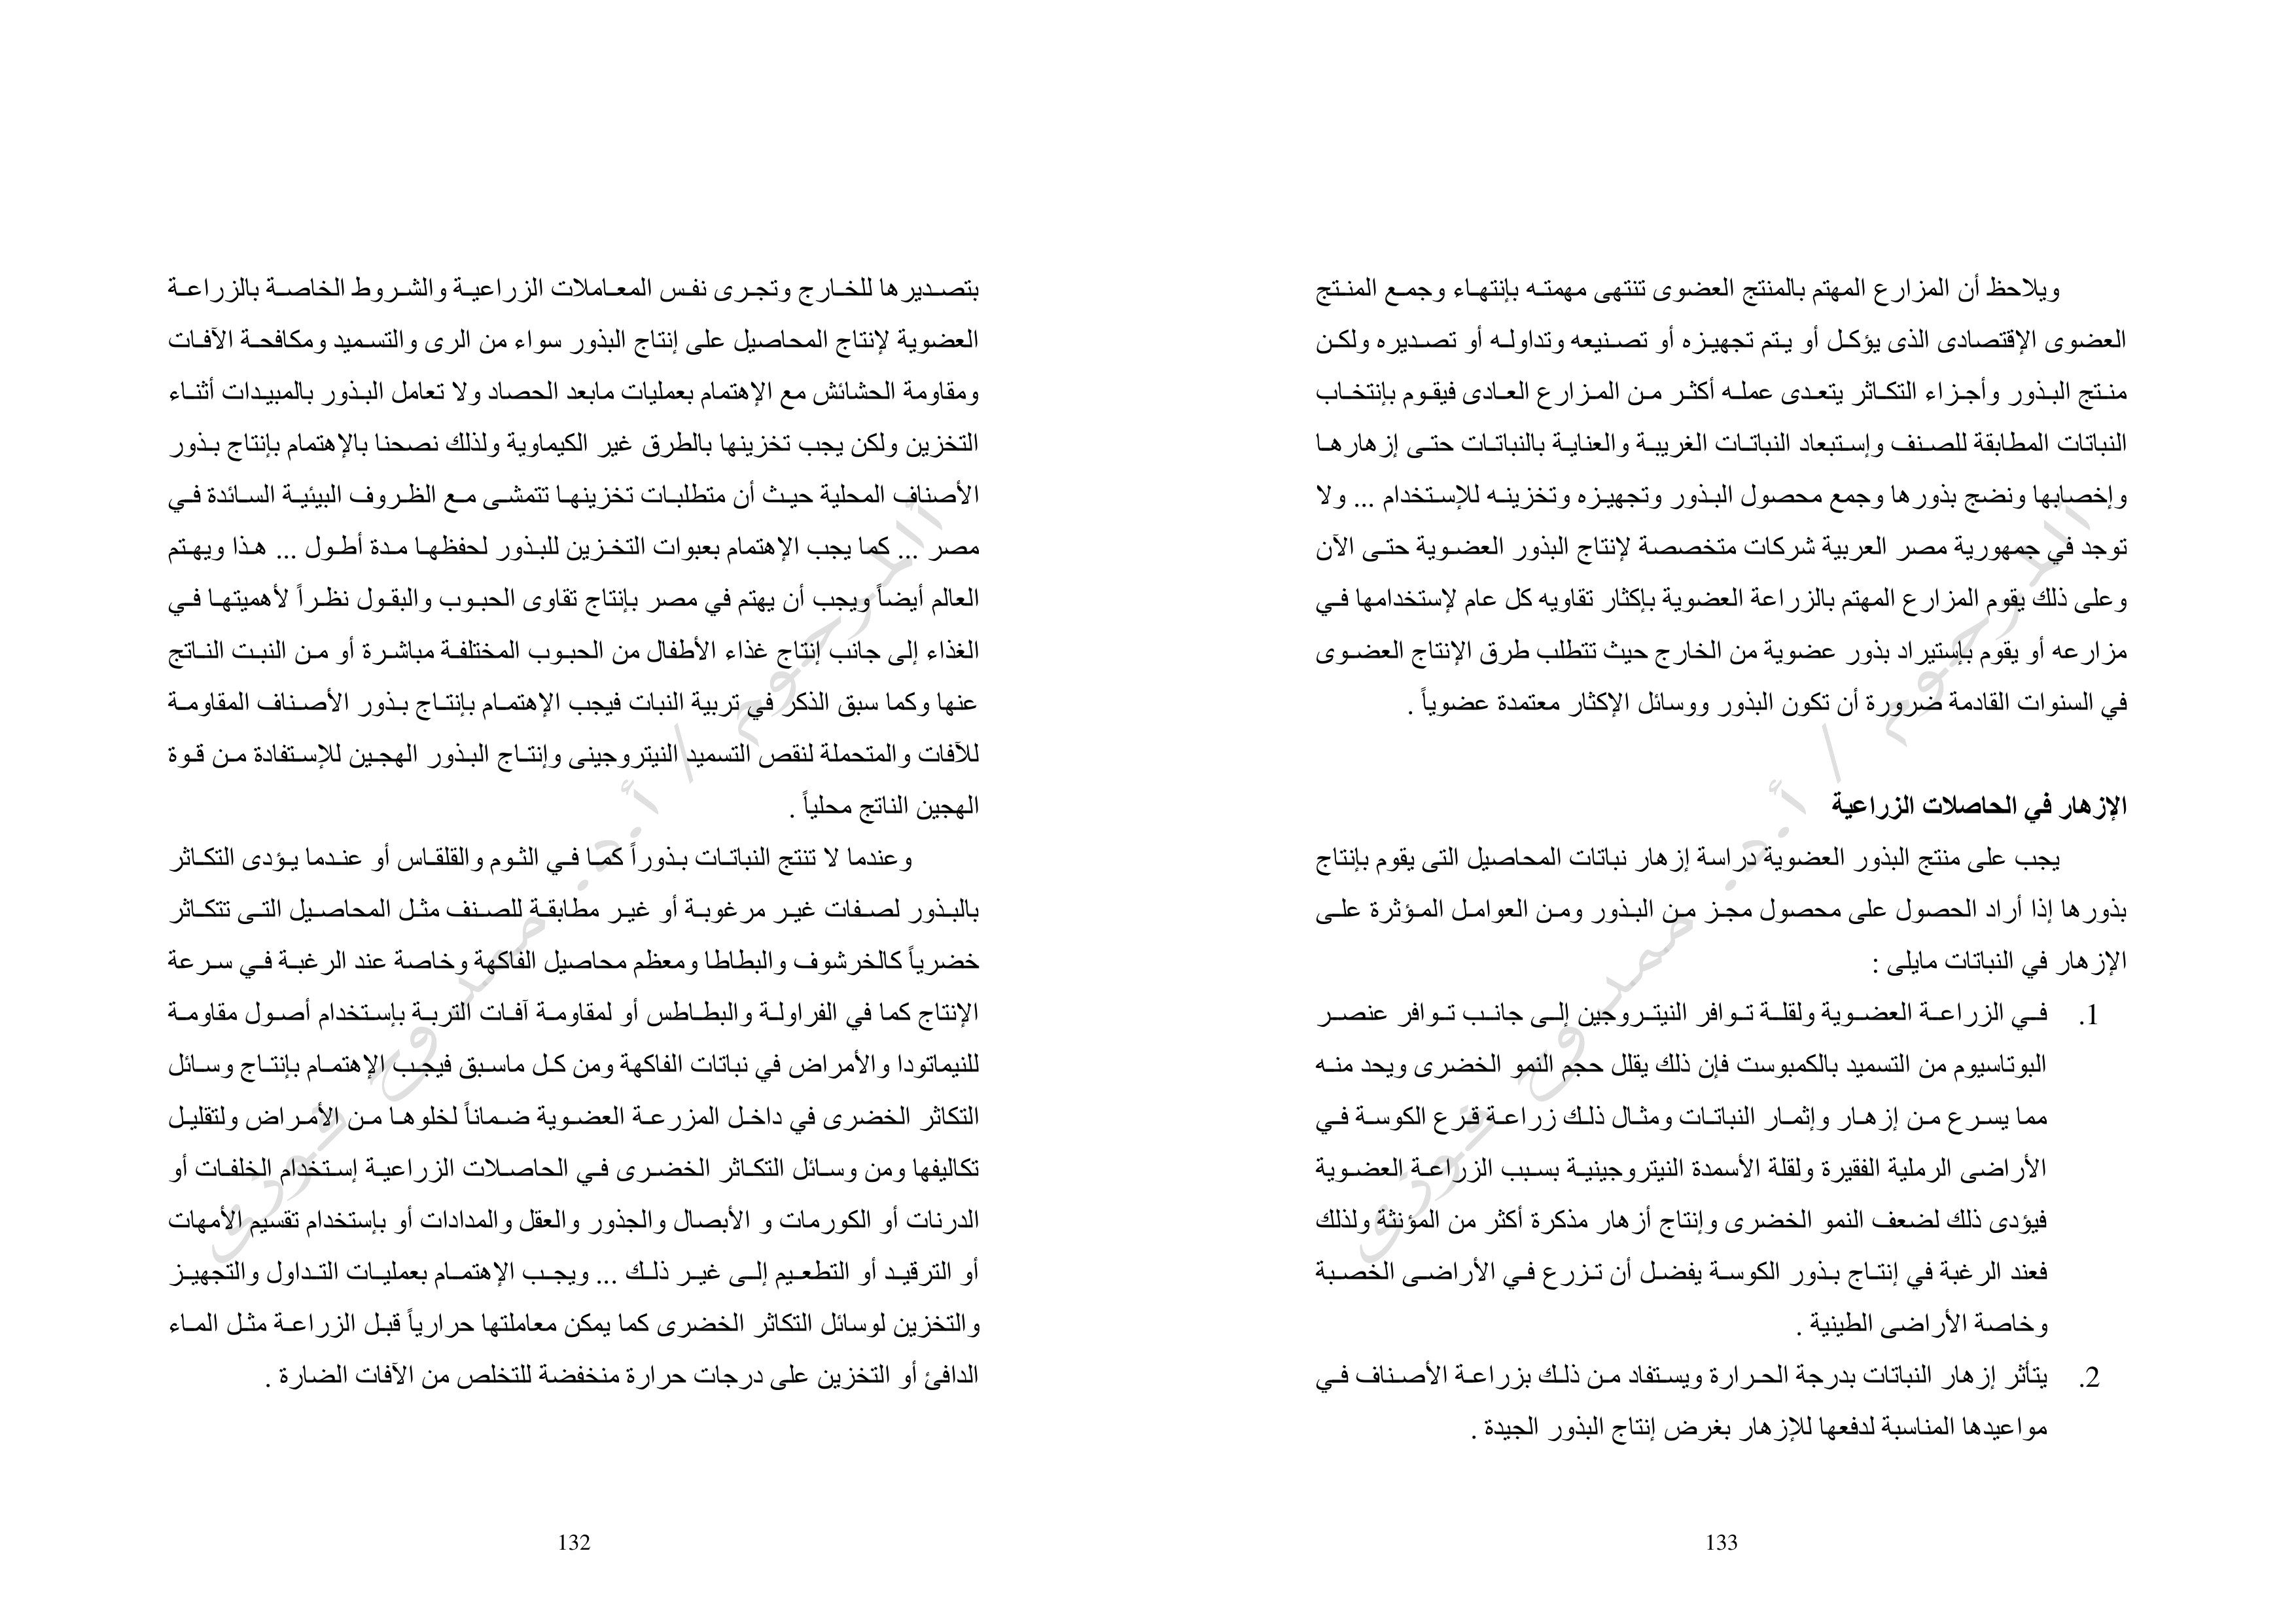 بتصديرها للخارج وتجرى نفس المعاملات الزراعية والشروط الخاصة بالزراعة
العضوية لإنتاج المحاصيل على إنتاج البذور سواء من الرى والتسميد ومكافحة الآفات
ومقاومة الحشائش مع الإهتمام بعمليات مابعد الحصاد ولا تعامل البذور بالمبيدات أثناء
التخزين ولكن يجب تخزينها بالطرق غير الكيماوية ولذلك نصحنا بالإهتمام بإنتاج بذور
الأصناف المحلية حيث أن متطلبات تخزينها تتمشى مع الظروف البيئية السائدة في
مصر ... كما يجب الإهتمام بعبوات التخزين للبذور لحفظها مدة أطول ... هذا ويهتم
العالم أيضاً ويجب أن يهتم في مصر بإنتاج تقاوى الحبوب والبقول نظراً لأهميتها في
الغذاء إلى جانب إنتاج غذاء الأطفال من الحبوب المختلفة مباشرة أو من النبت الناتج
عنها وكما سبق الذكر في تربية النبات فيجب الإهتمام بإنتاج بذور الأصناف المقاومة
للآفات والمتحملة لنقص التسميد النيتروجينى وإنتاج البذور الهجين للإستفادة من قوة
الهجين الناتج محلياً .
وعندما لا تنتج النباتات بذوراً كما في الثوم والقلقاس أو عندما يؤدى التكاثر
بالبذور لصفات غير مرغوبة أو غير مطابقة للصنف مثل المحاصيل التى تتكاثر
خضرياً كالخرشوف والبطاطا ومعظم محاصيل الفاكهة وخاصة عند الرغبة في سرعة
الإنتاج كما في الفراولة والبطاطس أو لمقاومة آفات التربة بإستخدام أصول مقاومة
للنيماتودا والأمراض في نباتات الفاكهة ومن كل ماسبق فيجب الإهتمام بإنتاج وسائل
التكاثر الخضرى في داخل المزرعة العضوية ضماناً لخلوها من الأمراض ولتقليل
تكاليفها ومن وسائل التكاثر الخضرى في الحاصلات الزراعية إستخدام الخلفات أو
الدرنات أو الكورمات و الأبصال والجذور والعقل والمدادات أو بإستخدام تقسيم الأمهات
أو الترقيد أو التطعيم إلى غير ذلك ... ويجب الإهتمام بعمليات التداول والتجهيز
والتخزين لوسائل التكاثر الخضرى كما يمكن معاملتها حرارياً قبل الزراعة مثل الماء
الدافئ أو التخزين على درجات حرارة منخفضة للتخلص من الآفات الضارة .
132
المرحوم / أ.د. ممدوح فوزى
ويلاحظ أن المزارع المهتم بالمنتج العضوى تنتهى مهمته بإنتهاء وجمع المنتج
العضوى الإقتصادى الذى يؤكل أو يتم تجهيزه أو تصنيعه وتداوله أو تصديره ولكن
منتج البذور وأجزاء التكاثر يتعدى عمله أكثر من المزارع العادى فيقوم بإنتخاب
النباتات المطابقة للصنف وإستبعاد النباتات الغريبة والعناية بالنباتات حتى إزهارها
وإخصابها ونضج بذورها وجمع محصول البذور وتجهيزه وتخزينه للإستخدام ... ولا
توجد في جمهورية مصر العربية شركات متخصصة لإنتاج البذور العضوية حتى الآن
وعلى ذلك يقوم المزارع المهتم بالزراعة العضوية بإكثار تقاويه كل عام لإستخدامها في
مزارعه أو يقوم بإستيراد بذور عضوية من الخارج حيث تتطلب طرق الإنتاج العضوى
في السنوات القادمة ضرورة أن تكون البذور ووسائل الإكثار معتمدة عضوياً .
الإزهار في الحاصلات الزراعية
يجب على منتج البذور العضوية دراسة إزهار نباتات المحاصيل التى يقوم بإنتاج
بذورها إذا أراد الحصول على محصول مجز من البذور ومن العوامل المؤثرة على
الإزهار في النباتات مايلى :
1. في الزراعة العضوية ولقلة توافر النيتروجين إلى جانب توافر عنصر
البوتاسيوم من التسميد بالكمبوست فإن ذلك يقلل حجم النمو الخضرى ويحد منه
مما يسرع من إزهار وإثمار النباتات ومثال ذلك زراعة قرع الكوسة في
الأراضى الرملية الفقيرة ولقلة الأسمدة النيتروجينية بسبب الزراعة العضوية
فيؤدى ذلك لضعف النمو الخضرى وإنتاج أزهار مذكرة أكثر من المؤنثة ولذلك
فعند الرغبة في إنتاج بذور الكوسة يفضل أن تزرع في الأراضى الخصبة
وخاصة الأراضى الطينية .
2. يتأثر إزهار النباتات بدرجة الحرارة ويستفاد من ذلك بزراعة الأصناف في
مواعيدها المناسبة لدفعها للإزهار بغرض إنتاج البذور الجيدة .
133
المرحوم / أ.د. ممدوح فوزى